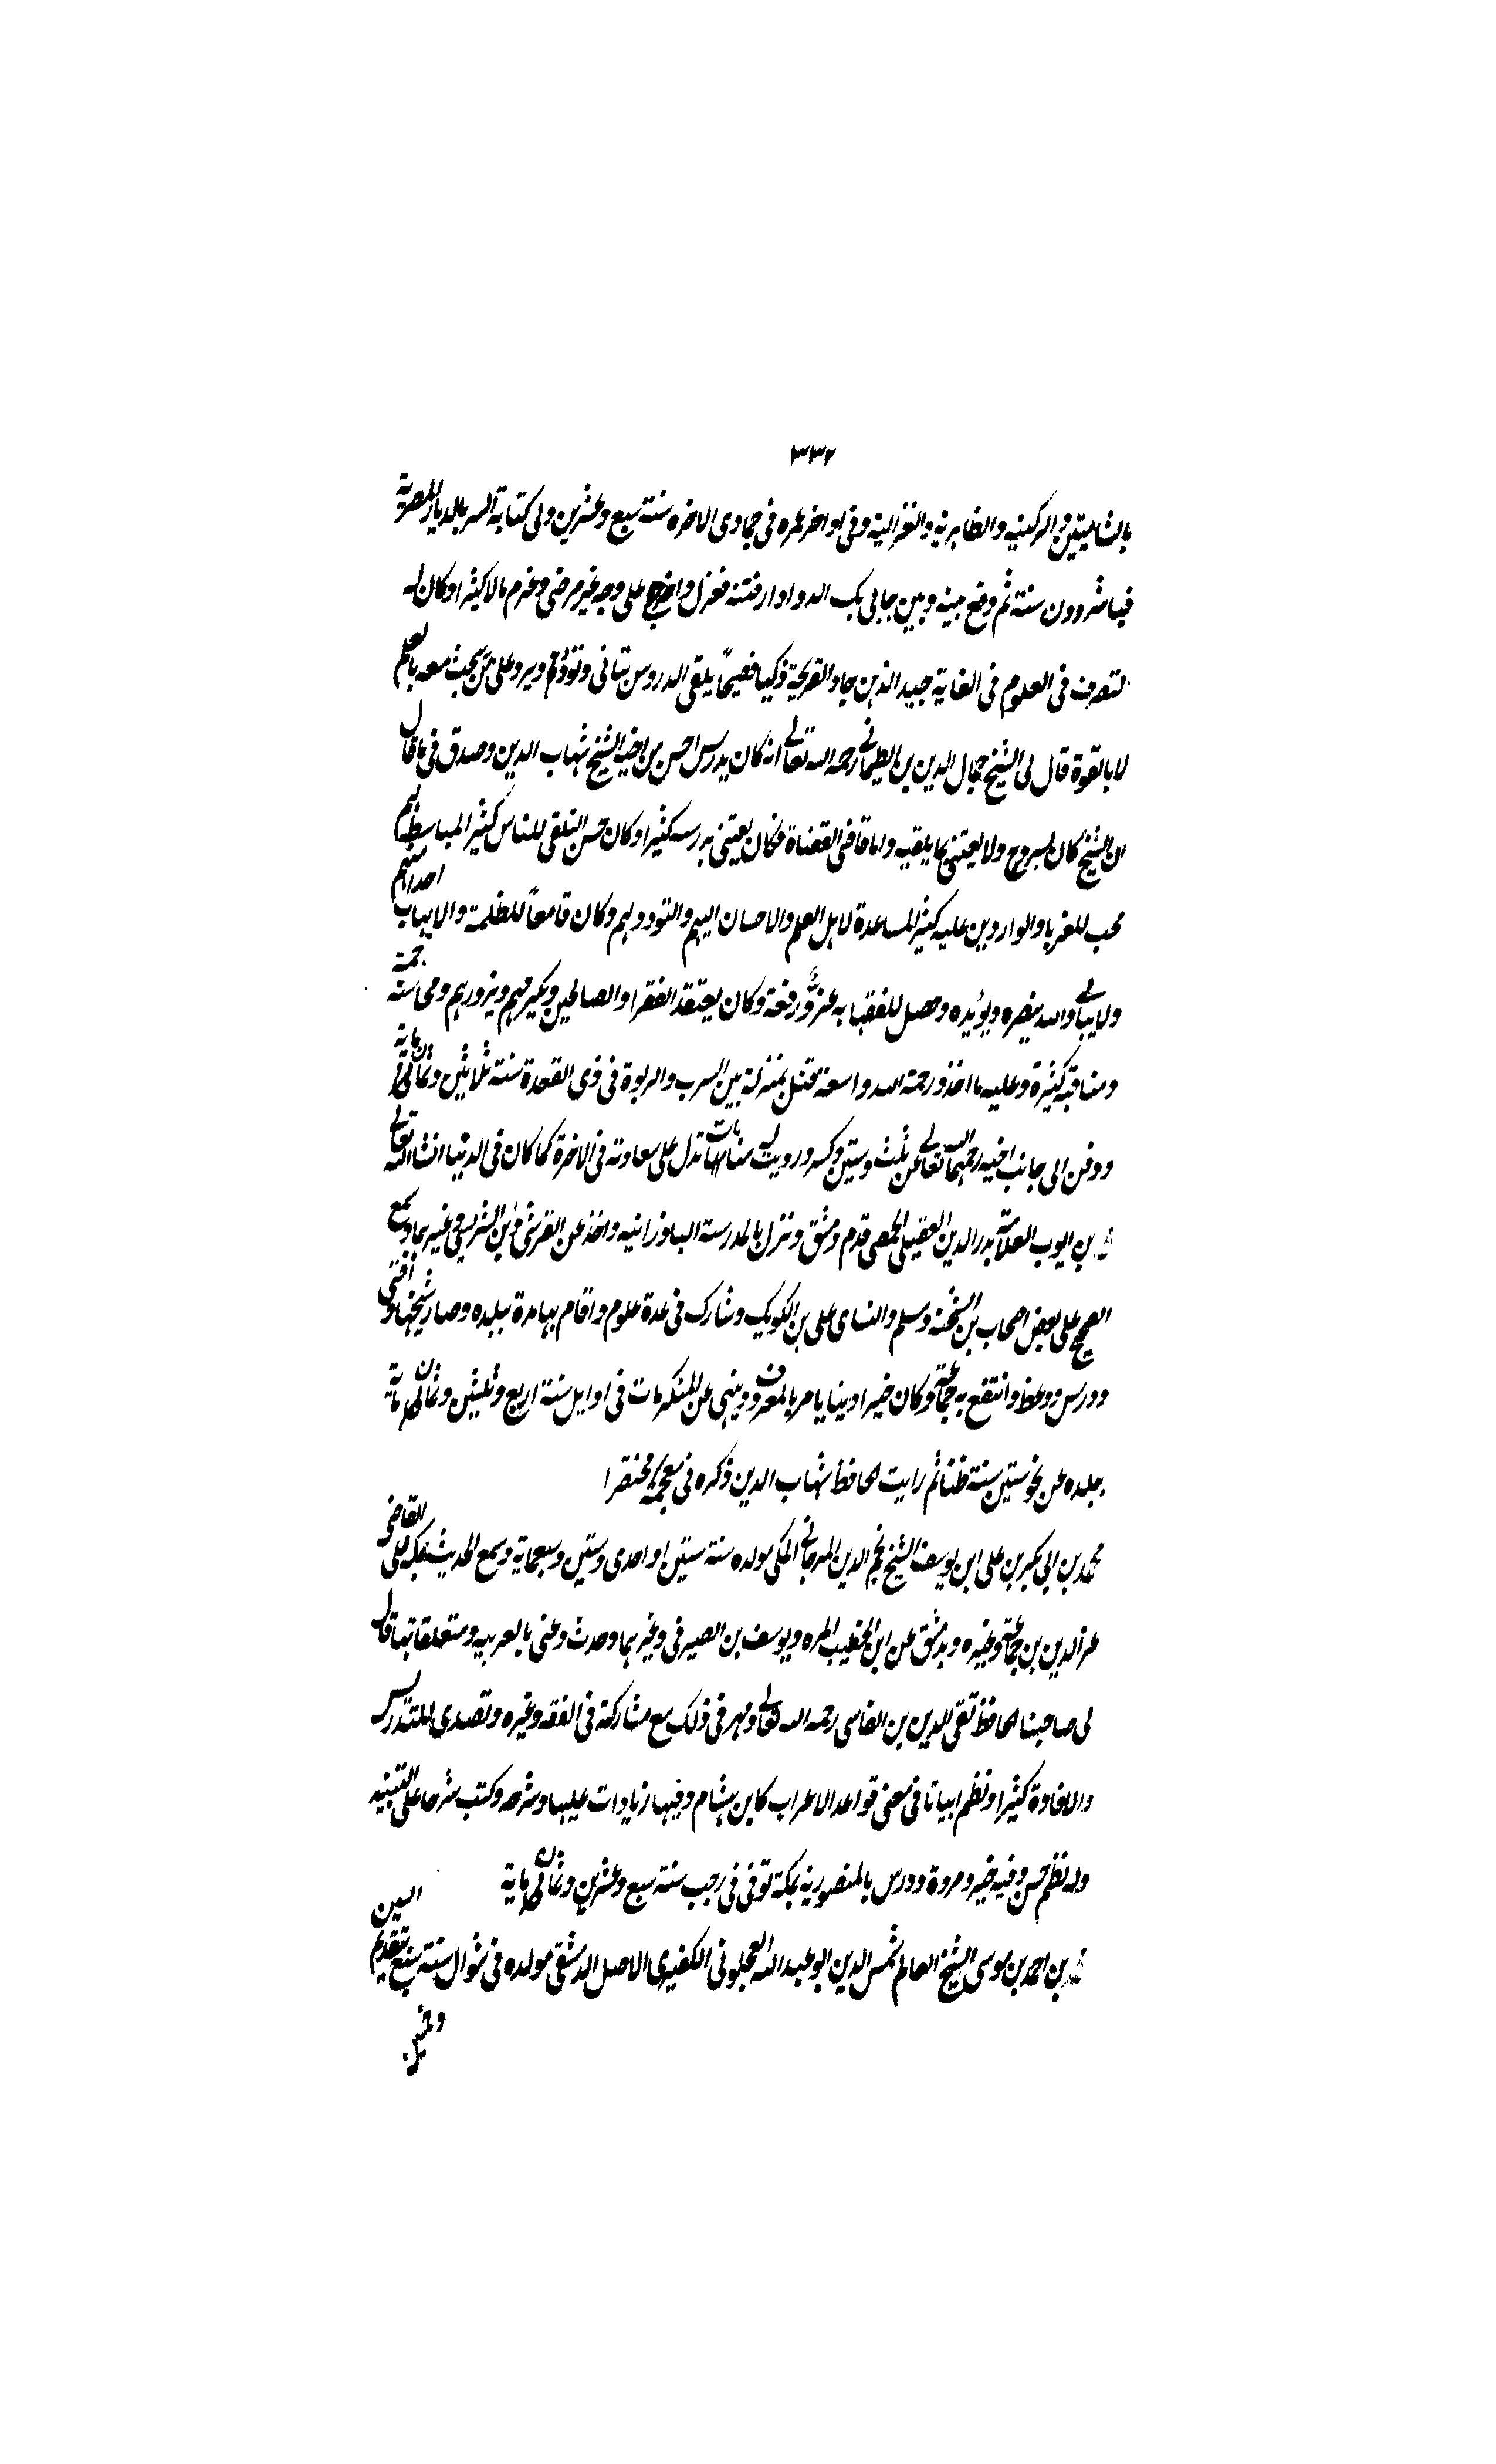 ٣٣٢
بالشاميتين والركنيه والظاهرية والغزالية وفى اواخر عمره فى جمادى الاخره سنة سبع وعشرين ولى كتابة السر بالديار المصرية
فباشر دون سنة ثم وقع بينه وبين جانى بك الدوادار فتنه فعزل واخرج على وجه غير مرضى وغرم مالا كثيرا وكان له
لتصرف فى العلوم فى الغاية جيد الذهن حاد القريحة ذكيا فصيحًا يلقى الدروس بتانى وتؤدة ويرد على من يبحث معه بالعلم
لا بالقوة قال لى الشيخ جمال الدين بن الطيمانى رحمه الله تعالى انه كان يدرس احسن من اخيه الشيخ شهاب الدين وصدق فى ما قال
ان الشيخ كان يسرع ولا يعتنى بما يلقيه واما قاضى القضاة فكان يعتنى بدرسه كثيرا وكان حسن التلقى للناس كثير المباسطة لهم
محب للغربا والواردين عليه كثير المساعدة لاهل العلم والاحسان اليهم والتودد لهم وكان قامعاً للظلمة ولا يهاب احدا منهم
ولا يبالى والله ينصره ويؤيده وحصل للفقها به عز ورفعة وكان يعتقد الفقرا والصالحين ويكبرهم ويزورهم ومحاسنه جمة
ومناقبه كثيرة وعليه ما اخذ ورحمة الله واسعة قتل بمنزله بين السرب والربوة فى ذى القعدة سنة ثلاثين وثمانى ماية
ودفن الى جانب اخيه رحمهما الله تعالى عن ثلث وستين وكسر ورويت له منامات تدل على سعادته فى الاخرة كما كان فى الدنيا انشا الله تعالى
بن ايوب العلامة بدر الدين العقيلى الحمصى قدم دمشق ونزل بالمدرسة الباذرانيه واخذ عن القرشى وابن الشريشى وغيرهما وسمع
الصحيح على بعض اصحاب بن الشحنة ومسلم والنساى على بن الكويك وشارك فى عدة علوم واقام بها مدة ببلده وصار شيخها وافتى
ودرس ووعظ وانتفع به جماعة وكان خيرا دينا يامر بالمعروف وينهى عن المنكر مات فى اوايل سنة اربع وثلثين وثمانى ماية
ببلده عن نحو ستين سنة ظنا ثم رايت الحافظ شهاب الدين ذكره فى معجمه مختصرا
محمد بن ابى بكر بن على ابن يوسف الشيخ نجم الدين المرجانى المكى مولده سنة ستين او احدى وستين وسبعماية وسمع الحديث بمكة على القاضى
عز الدين بن جماعة وغيره وبدمشق عن ابن الخطيب المزه ويوسف بن الصيرفى وغيرهما وحدث وعنى بالعربيه ومتعلقاتها قال
لى صاحبنا الحافظ تقى الدين بن الفاسى رحمه الله تعالى ومهر فى ذلك مع مشاركة فى الفقه وغيره وتصدى للتدريس
والافادة كثيرا ونظم ابياتا فى معنى قواعد الاعراب كابن هشام وفيها زيادات عليها وشرحه وكتب شرحا على التنبيه
وله نظم حسن وفيه خير ومروة ودرس بالمنصورية بمكة توفى فى رجب سنة سبع وعشرين وثمانى ماية
بن احمد بن موسى الشيخ العالم شمس الدين ابو عبد الله العجلونى الكفيرى الاصل الدمشقى مولده فى شوال سنة سبع بتقديم السين
وخمسين